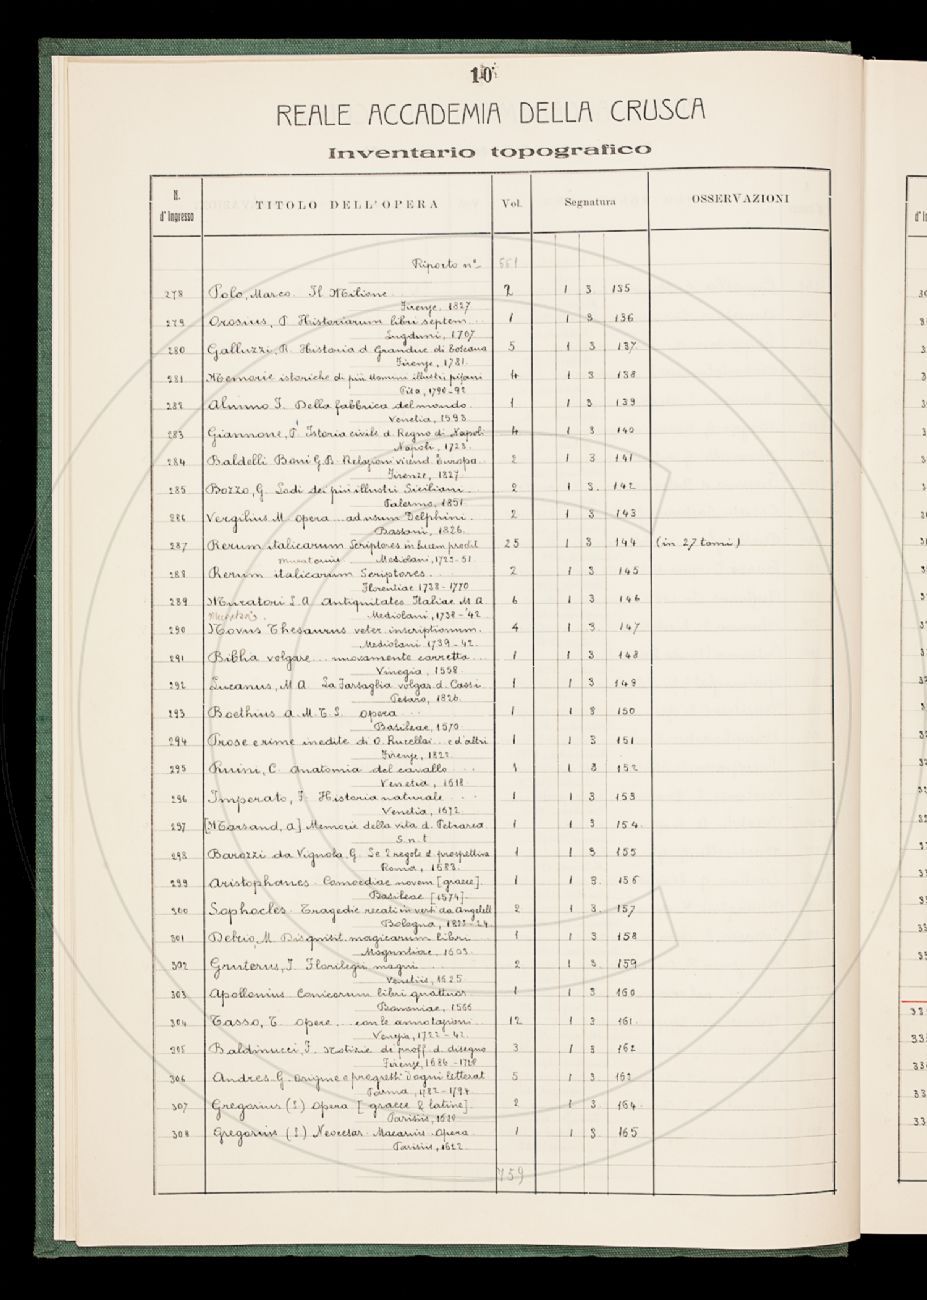 10
REALE ACCADEMIA DELLA CRUSCA
Inventario topografico
N. d'Ingresso TITOLO DELL'OPERA Vol. Segnatura OSSERVAZIONI
Riporto n° 551
278 Polo, Marco. Il Milione 2 1 3 135
Firenze, 1827
279 Orosius, P. Historiarum libri septem... 1 1 3 136
Lugduni, 1767
280 Galluzzi, R. Historia d. Granduc. di Toscana 5 1 3 137
Firenze, 1781
281 Memorie istoriche di più uomini illustri pisani 4 1 3 138
Pisa, 1790-92
282 Alunno F. Della fabbrica del mondo. 1 1 3 139
Venetia, 1593
283 Giannone, P. Istoria civile d. Regno di Napoli 4 1 3 140
Napoli, 1723
284 Baldelli Boni G.B. Relazioni vicend. Europa 2 1 3 141
Firenze, 1827
285 Bozzo, G. Lodi dei più illustri Siciliani 2 1 3. 142
Palermo, 1851
286 Vergilius M. opera ... ad usum Delphini. 2 1 3 143
Bassani, 1826.
287 Rerum italicarum Scriptores in lucem prodit 25 1 3 144 (in 27 tomi)
Muratorius Mediolani, 1723-51
288 Rerum italicarum Scriptores. 2 1 3 145
Florentiae 1738-1770
289 Muratori L.A. Antiquitates Italiae M.A. 6 1 3 146
Mediolani, 1738-'42
290 Novus Thesaurus veter. inscriptionum. 4 1 3 147
Mediolani 1739-42.
291 Biblia volgare... nuovamente corretta... 1 1 3 148
Vinegia, 1558
292 Lucanus, M A La Farsaglia volgar. d. Cassi 1 1 3 149
Pesaro, 1826.
293 Boethius A.M.T.S. opera... 1 1 3 150
Basileae, 1570
294 Prose e rime inedite di O. Rucellai... e d'altri 1 1 3 151
Firenze, 1822
295 Ruini, C. Anatomia del cavallo... 1 1 3 152
Venetia, 1618
296 Imperato, F. Historia naturale... 1 1 3 153
Venetia, 1672
297 [Marsand, A] Memorie della vita d. Petrarca 1 1 3 154.
S.n.t
298 Barozzi da Vignola, G. Le 2 regole d. prospettiva 1 1 3 155
Roma, 1583.
299 Aristophanes. Comoediae novem [graece]. 1 1 3. 156
Basileae [1574]
300 Sophocles. Tragedie recati in versi da Angelelli 2 1 3. 157
Bologna, 1823-24
301 Delrio, M. Disquisit. magicarum libri 1 1 3 158
Moguntiae, 1603
302 Gruterus, J. Florilegii magni 2 1 3. 159
Venetiis, 1625
303 Apollonius. Conicorum libri quattuor 1 1 3 160
Bononiae, 1566
304 Tasso, T. opere... con le annotazioni 12 1 3 161.
Venezia, 1722-42.
305 Baldinucci, F. Notizie de' proff. d. disegno 3 1 3 162
Firenze, 1686-1728
306 Andres G. origine e progressi d'ogni letterat 5 1 3 163
Parma, 1782-1794
307 Gregorius (S.) Opera [graece & latine]. 2 1 3. 164.
Parisiis,
308 Gregorius (S.) Neocesar. Macarius. Opera. 1 1 3 165
Parisiis, 1622.
759